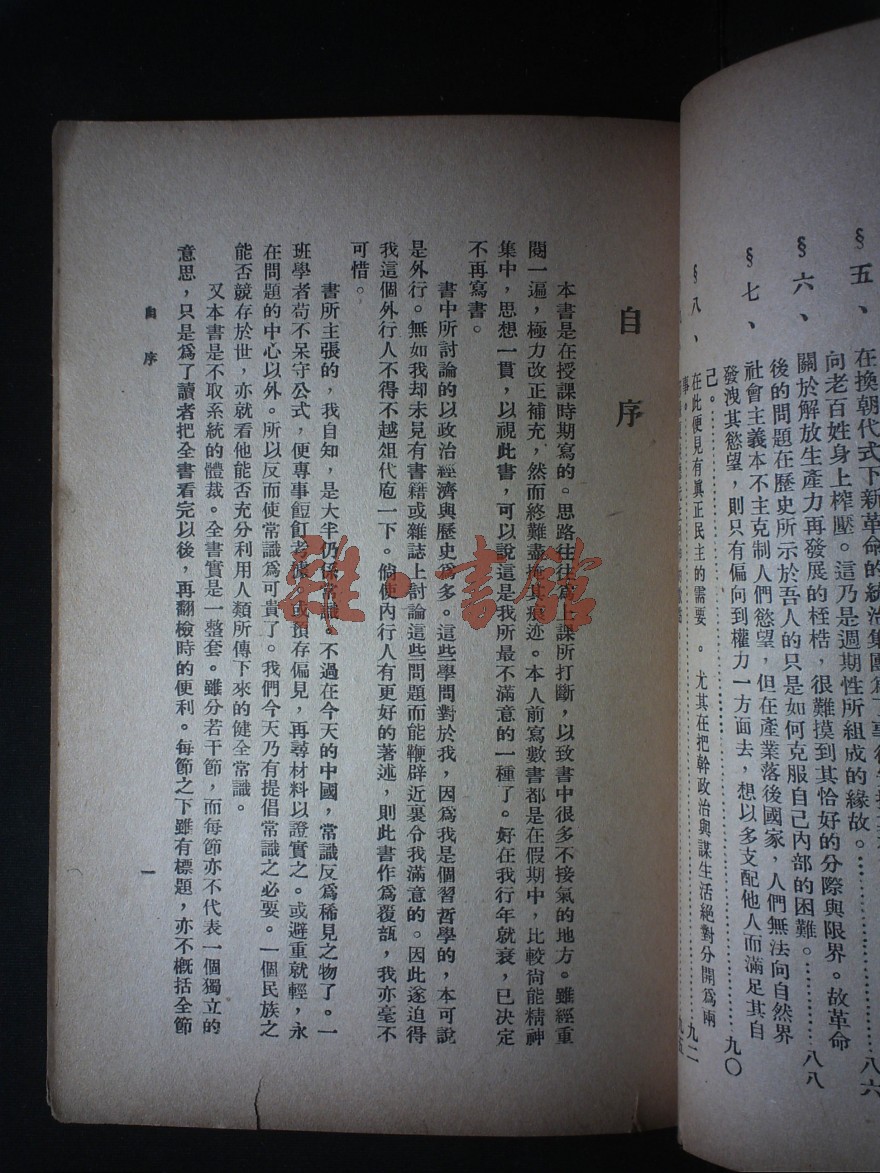 §五、
在換朝代式下新革命的統治集團
向老百姓身上榨壓。這乃是週期性所組成的緣故。…………八六
§六、
關於解放生產力再發展的桎梏，很難摸到其恰好的分際與限界。故革命
後的問題在歷史所示於吾人的只是如何克服自己內部的困難。…………八八
§七、
社會主義本不主克制人們慾望，但在產業落後國家，人們無法向自然界
發洩其慾望，則只有偏向到權力一方面去，想以多支配他人而滿足其自
己。…………九〇
§八、
在此便見有眞正民主的需要。尤其在把幹政治與謀生活絕對分開爲兩
事。…………九二
自序
本書是在授課時期寫的。思路往往爲上課所打斷，以致書中很多不接氣的地方。雖經重
閱一遍，極力改正補充，然而終難盡掩其痕迹。本人前寫數書都是在假期中，比較尙能精神
集中，思想一貫，以視此書，可以說這是我所最不滿意的一種了。好在我行年就衰，已決定
不再寫書。
書中所討論的以政治經濟與歷史爲多。這些學問對於我，因爲我是個習哲學的，本可說
是外行。無如我却未見有書籍或雜誌上討論這些問題而能鞭辟近裏令我滿意的。因此遂迫得
我這個外行人不得不越俎代庖一下。倘使內行人有更好的著述，則此書作爲覆瓿，我亦毫不
可惜。
書所主張的，我自知，是大半仍係常識。不過在今天的中國，常識反爲稀見之物了。一
班學者苟不呆守公式，便專事餖飣考據，或預存偏見，再尋材料以證實之。或避重就輕，永
在問題的中心以外。所以反而使常識爲可貴了。我們今天乃有提倡常識之必要。一個民族之
能否競存於世，亦就看他能否充分利用人類所傳下來的健全常識。
又本書是不取系統的體裁。全書實是一整套。雖分若干節，而每節亦不代表一個獨立的
意思，只是爲了讀者把全書看完以後，再翻檢時的便利。每節之下雖有標題，亦不概括全節
自序
一
雜·書館